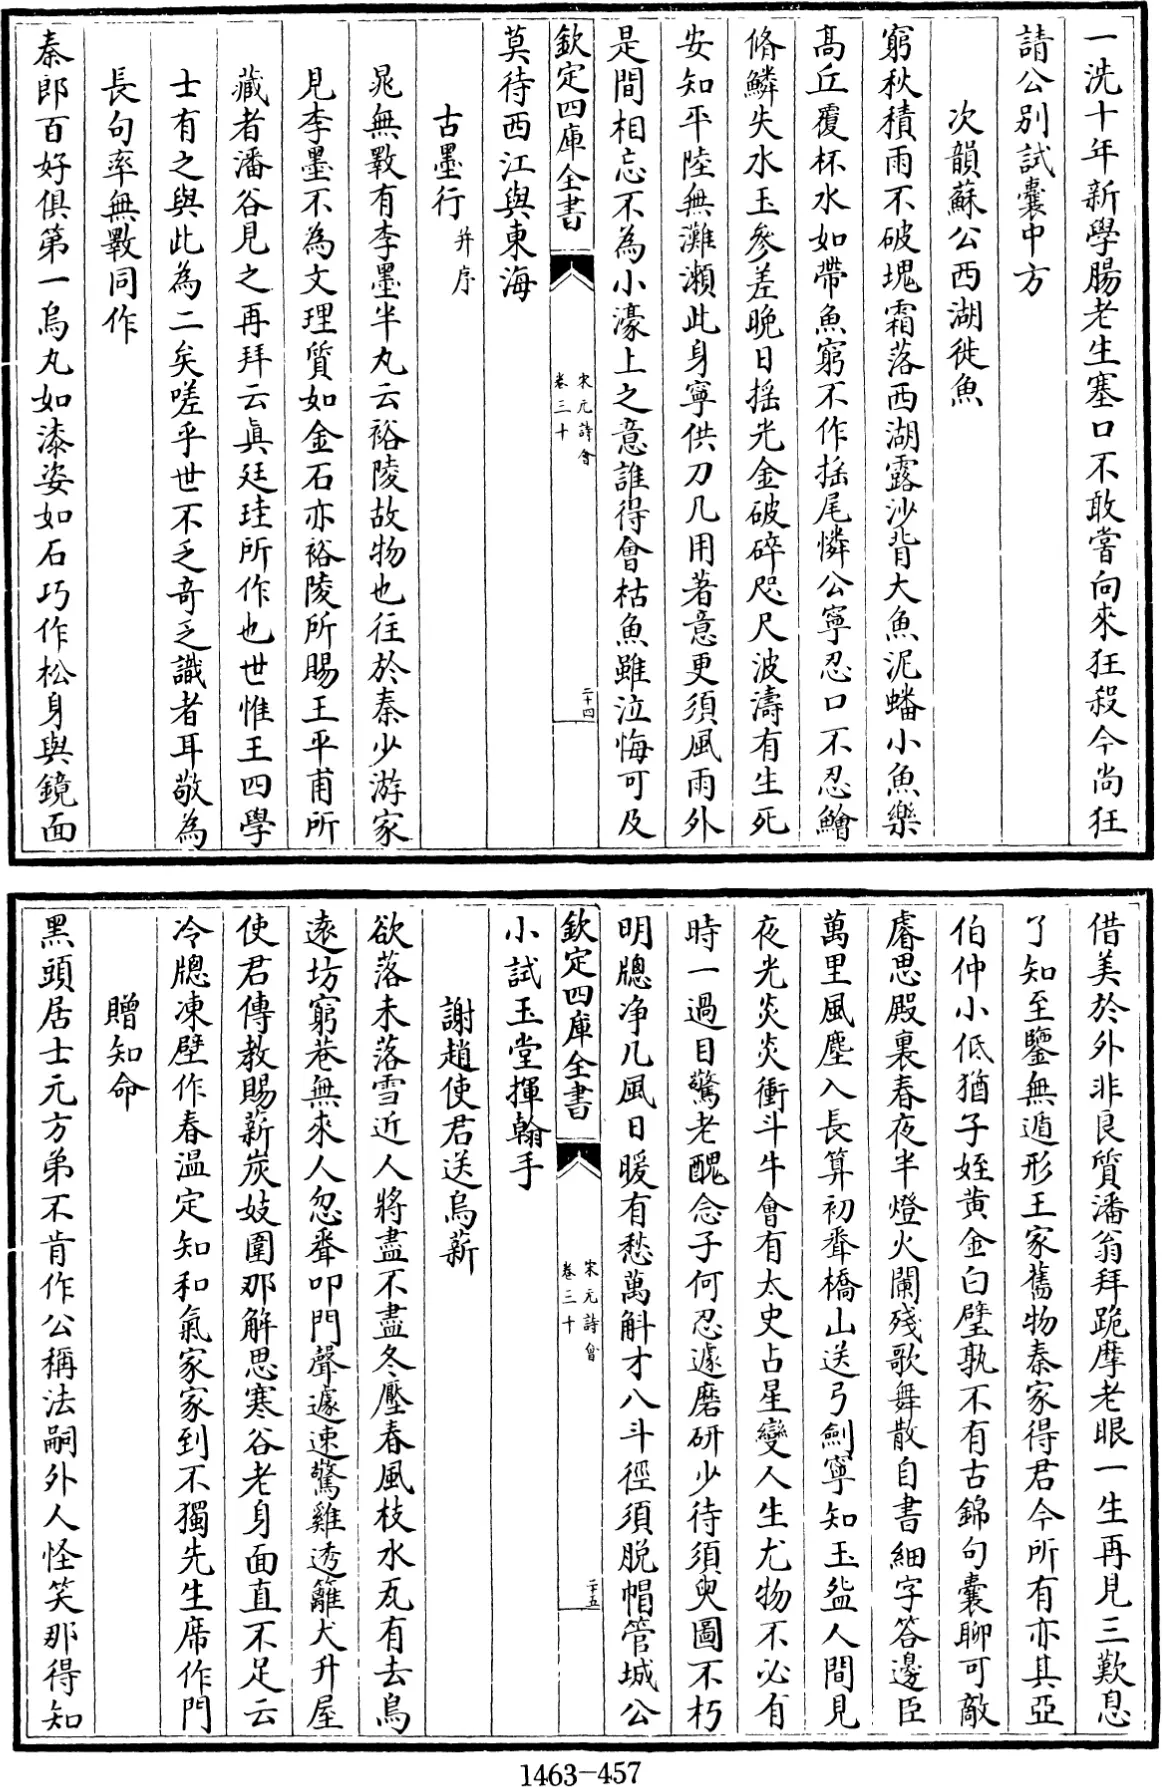 一洗十年新學腸老生塞口不敢嘗向來狂殺今尚狂
請公别試囊中方
次韻蘇公西湖徙魚
窮秋積雨不破塊霜落西湖露沙背大魚泥蟠小魚樂
髙丘覆杯水如帶魚窮不作揺尾憐公寧忍口不忍鱠
脩鱗失水玉參差晩日揺光金破碎咫尺波濤有生死
安知平陸無灘瀬此身寧供刀几用著意更須風雨外
是間相忘不為小濠上之意誰得會枯魚雖泣悔可及
欽定四庫全書
宋元詩會
卷三十
二十四
莫待西江與東海
古墨行并序
晁無斁有李墨半丸云裕陵故物也往於秦少游家
見李墨不為文理質如金石亦裕陵所賜王平甫所
藏者潘谷見之再拜云眞廷珪所作也世惟王四學
士有之與此為二矣嗟乎世不乏奇乏識者耳敬為
長句率無斁同作
秦郎百好俱第一烏丸如漆姿如石巧作松身與鏡面
借美於外非良質潘翁拜跪摩老眼一生再見三歎息
了知至鑒無遁形王家舊物秦家得君今所有亦其亞
伯仲小低猶子姪黄金白璧孰不有古錦句囊聊可敵
睿思殿裏春夜半燈火闌殘歌舞散自書細字答邊臣
萬里風塵入長算初聳橋山送弓劍寧知玉盌人間見
夜光炎炎衝斗牛會有太史占星變人生尤物不必有
時一過目驚老醜念子何忍遽磨研少待須臾圖不朽
明牕净几風日暖有愁萬斛才八斗徑須脱帽管城公
欽定四庫全書
宋元詩會
卷三十
二十五
小試玉堂揮翰手
謝趙使君送烏薪
欲落未落雪近人將盡不盡冬壓春風枝水瓦有去鳥
逺坊窮巷無來人忽聳叩門聲遽速驚雞透籬犬升屋
使君傳教賜薪炭妓圍那解思寒谷老身面直不足云
冷牕凍壁作春温定知和氣家家到不獨先生席作門
贈知命
黑頭居士元方弟不肯作公稱法嗣外人怪笑那得知
1463-457